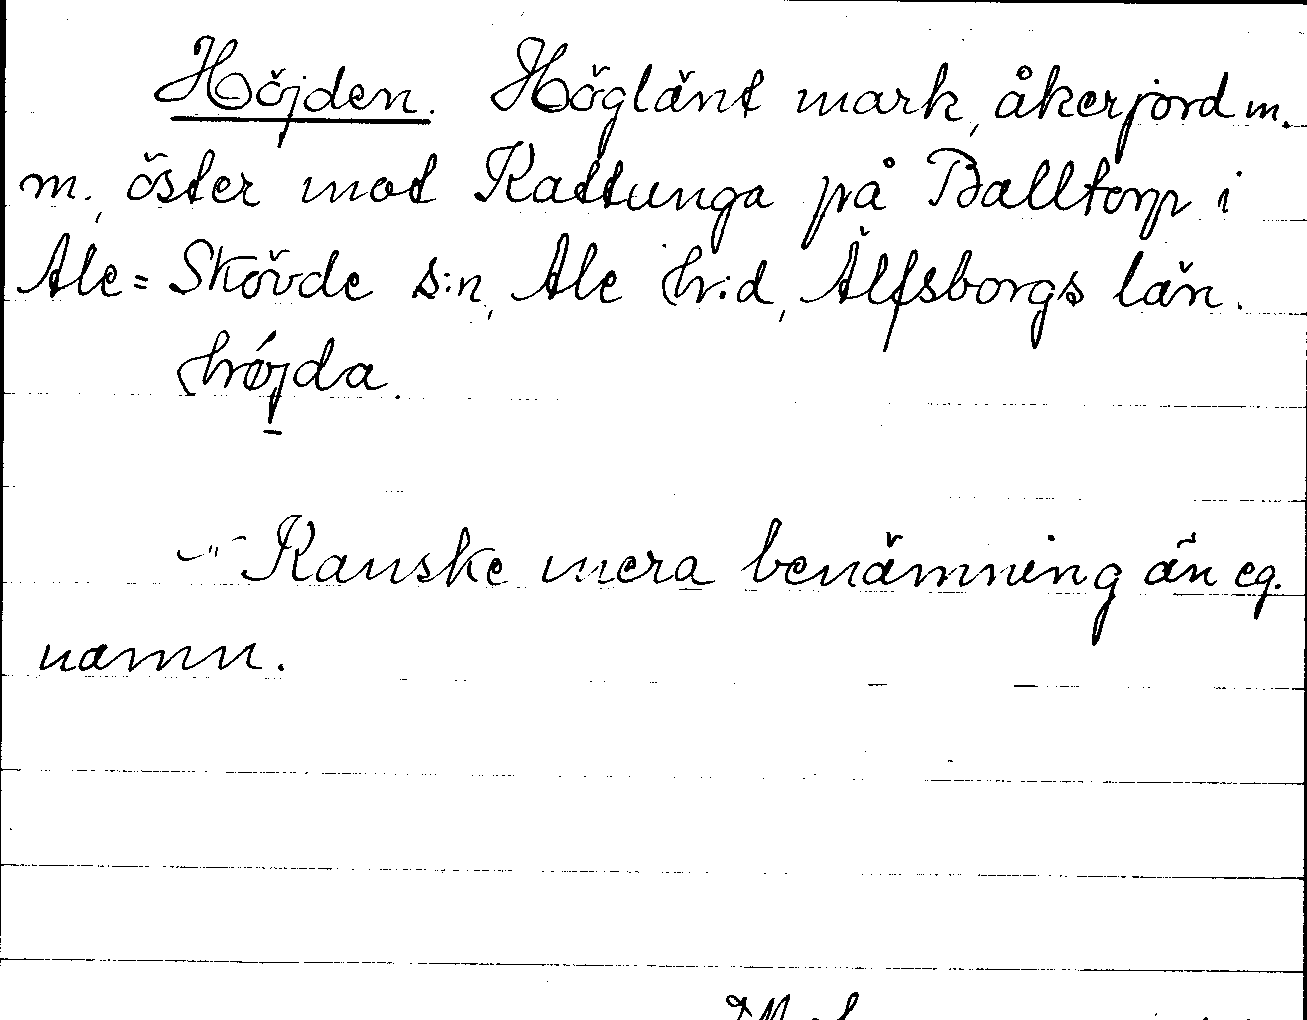 Höjden. Höglänt mark, åkerjord m.
m., öster mot Kattunga på Balltorp i
Ale=Skövde s:n, Ale h:d, Älfsborgs län.
hǿjda.
-"- Kanske mera benämning än eg.
namn.